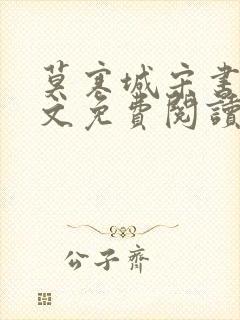 莫寒城宋書
文免費閱讀
公子齊